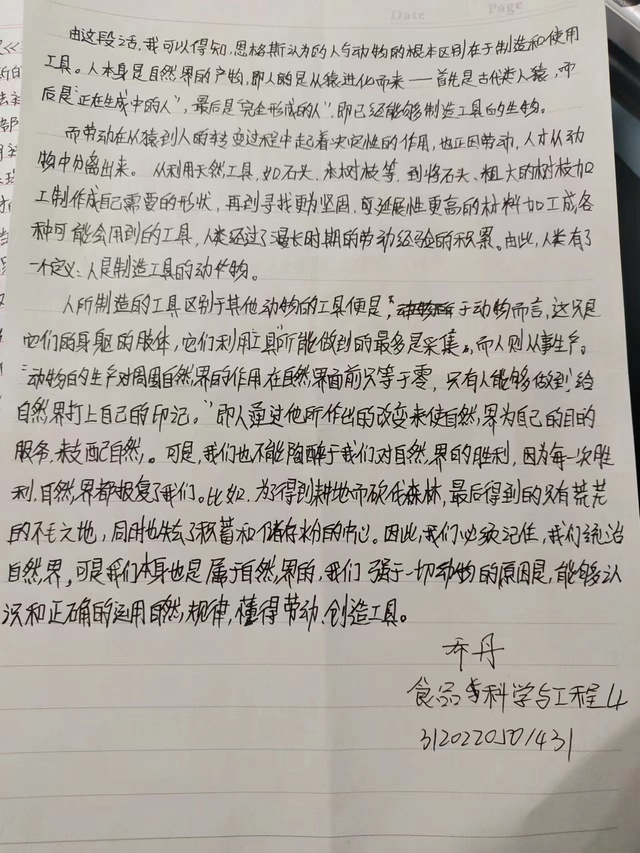 Date Page
由这段话,我可以得知,恩格斯认为的人与动物的根本区别在于制造和使用
工具。人本身是自然界的产物,即人的是从猿进化而来——首先是古代类人猿,而
后是"正在生成中的人",最后是"完全形成的人",即已经能够制造工具的生物。
而劳动在从猿到人的转变过程中起着决定性的作用,也正因劳动,人才从动
物中分离出来。从利用天然工具,如石头、木树枝等,到将石头、粗大的树枝加
工制作成自己需要的形状,再到寻找更为坚固、延展性更高的材料加工成各
种可能会用到的工具,人类经过了漫长时期的劳动经验的积累。由此,人类有了
一个定义:人是制造工具的动物。
人所制造的工具区别于其他动物的工具便是,于动物而言,这只是
它们的身躯的肢体,它们利用"工具"所能做到的最多是采集,而人则从事生产。
"动物的生产对周围自然界的作用在自然界面前只等于零,只有人能够做到给
自然界打上自己的印记。"即人通过他所作出的改变来使自然界为自己的目的
服务,来支配自然。可是,我们也不能陶醉于我们对自然界的胜利,因为每一次胜
利,自然界都报复了我们。比如,为了得到耕地而砍伐森林,最后得到的只有荒芜
的不毛之地,同时也失去了积蓄和储存水份的中心。因此,我们必须记住,我们统治
自然界,可是我们本身也是属于自然界的,我们强于一切动物的原因是,能够认
识和正确的运用自然规律,懂得劳动、创造工具。
乔丹
食品科学与工程4
3120220501431